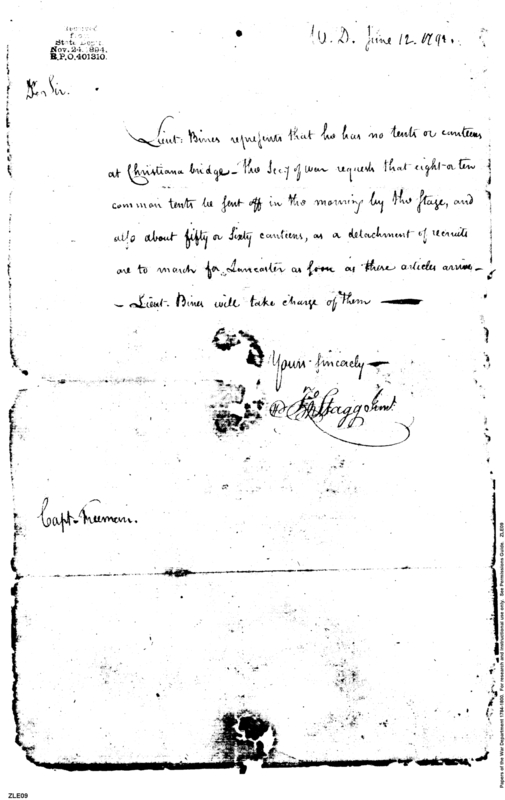 Received
from
State Dept.
Nov. 24, 1894.
R.P.O. 401310.
W. D. June 12. 1794.
Dr Sir.
Lieut. Bines represents that he has no tents or canteens
at Christiana bridge – the Secy of war requests that eight or ten
common tents be sent off in the morning by the Stage, and
also about fifty or Sixty canteens, as a detachment of recruits
are to march for Lancaster as soon as these articles arrive –
– Lieut. Bines will take charge of them –
Yours sincerely –
Jno Stagg Junr.
Capt. Freeman.
Papers of the War Department 1784-1800. For research and instructional use only. See Permissions Guide. ZLE09
ZLE09